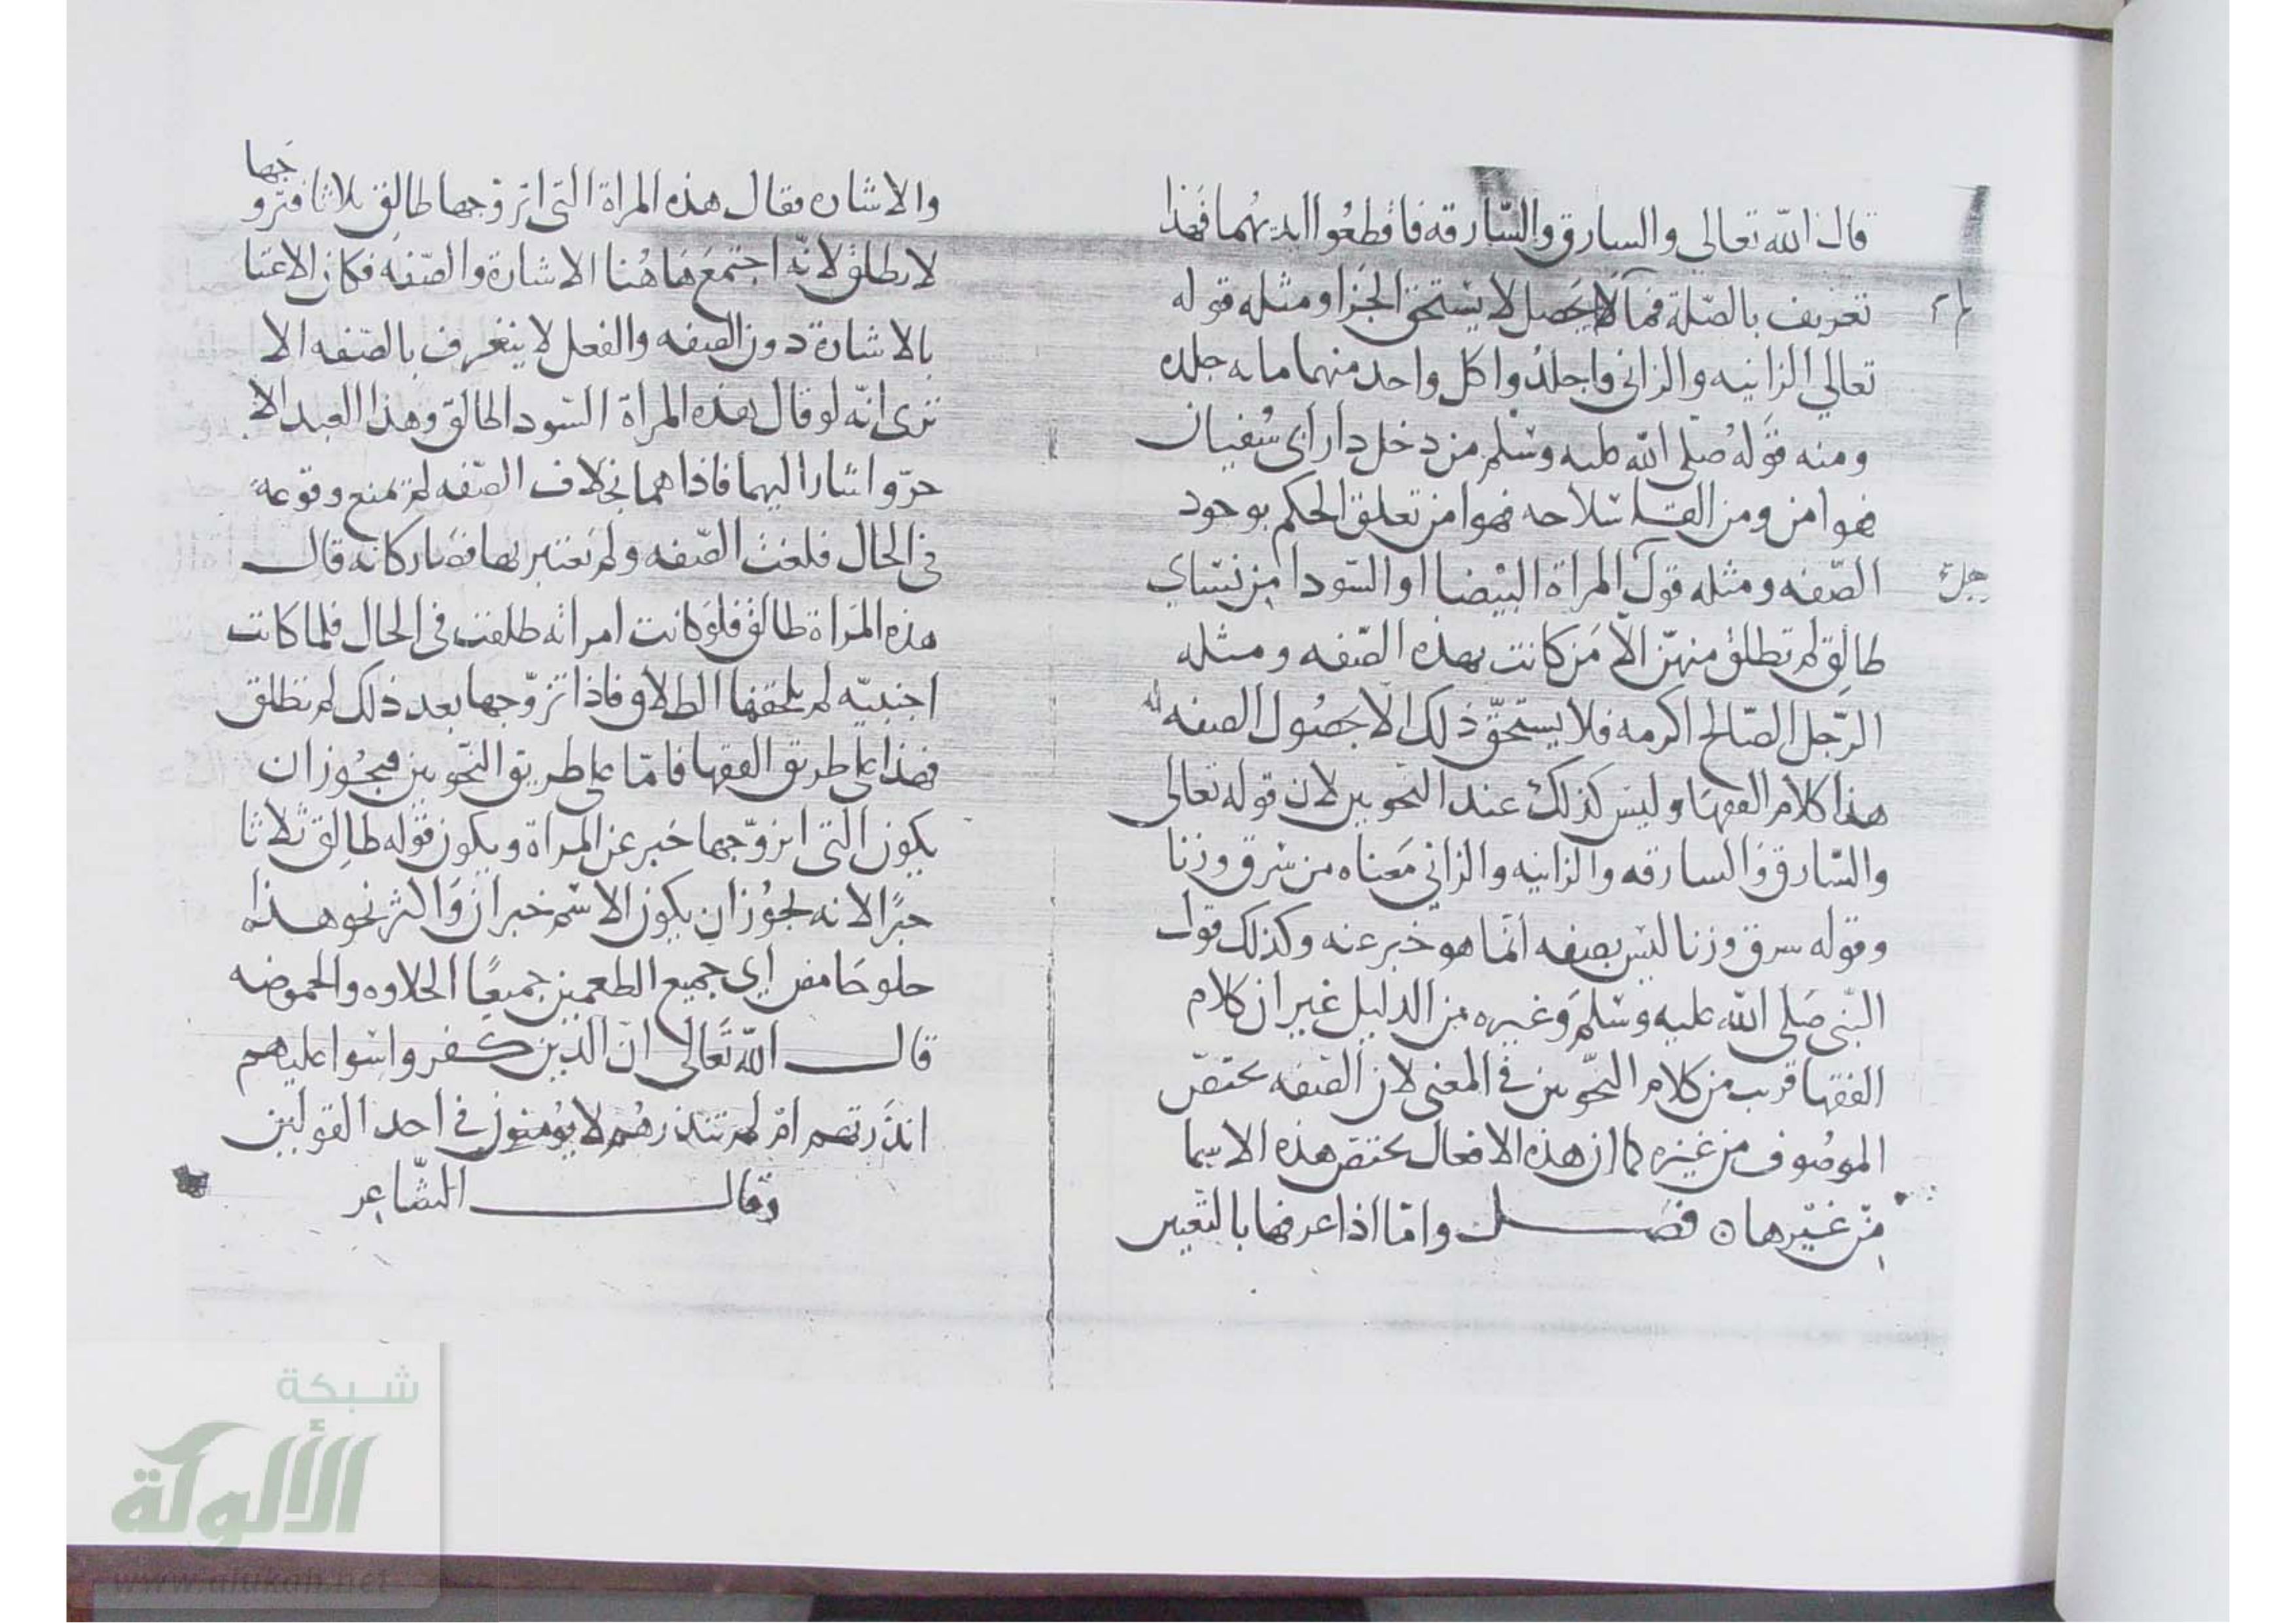 قال الله تعالى والسارق والسّارقه فاقطعُوا ايديهُما فهذا
تعريف بالصّلة فما لا يحصل لا يستحق الجزا ومثله قوله
تعالي الزانيه والزاني فاجلدُوا كل واحد منهما مايه جلده
ومنه قولهُ صلى الله عليه وسلم من دخل دار ابى سُفيان
فهو امن ومن القا سلاحه فهو امن تعلق الحكم بوجود
الصّفه ومثله قول المراة البيْضا او السّودا مِن نسَاي
طالِق لم تطلق منهنّ الّا مَن كانت بهذه الصّفه ومثله
الرّجل الصّالح اكرمه فلا يستحقّ ذلك الّا بحصُول الصفه له
هذا كلام الفقهَا وليسَ كذلك عند النّحويين لان قوله تعالى
والسّارق وَالسارقه والزانيه والزاني مَعناه من سَرق وزنا
وقوله سرق وزنا ليسَ بصفه انّما هو خبر عنه وكذلك قول
النّبى صَلى الله عليه وسَلمَ وغيره مِن الدليل غير ان كلام
الفقها قريب من كلام النّحويين في المعنى لان الصّفه تختصّ
الموصُوف من غيْره كما ان هذه الافعال تختص هذه الاسما
مِن غيْرها ن فصل وامّا اذا عرفها بالتّعيين
والاشاره فقال هذه المراة التى اتزوّجها طالِق ثلاثا فتزو
جها
لا تطلق لانّه اجتمعَ هَاهُنا الاشارة والصّفه فكان الاعتبا
بالاشارة دون الصفه والفعل لا يتعرف بالصّفه الا
ترى انّه لو قال هذه المراة السّودا طالق وهذا العبد الا
حرّ واشارا اليهما فاذا هما بخلاف الصّفه لم تمنع وقوعه
في الحال فلغت الصّفه ولم تعتبر بها فصَار كانه قال
هذه المَراة طالق فلو كانت امراته طلقت فى الحال فلما كانت
اجنبيّه لم يلحقها الطلاق فاذا تزوّجها بعد ذلك لم تطلق
فهذا على طريق الفقها فامّا على طريق النّحويين فيجُوز ان
يكون التى اتزوّجها خبر عن المراة ويكون قوله طالِق ثلاثا
خبرًا لانه يجُوز ان يكون الاسْم خبران وَاكثر نحو هذا
حلو حَامض اي جميع الطعمين جميعًا الحلاوه والحموضه
قال الله تَعالى ان الذين كفروا سوا عليهم
انذَرتهم امْ لم تنذرهُم لا يُومنون في احد القولين
وقال الشّاعِر
شبكة
الألوكة
www.alukah.net